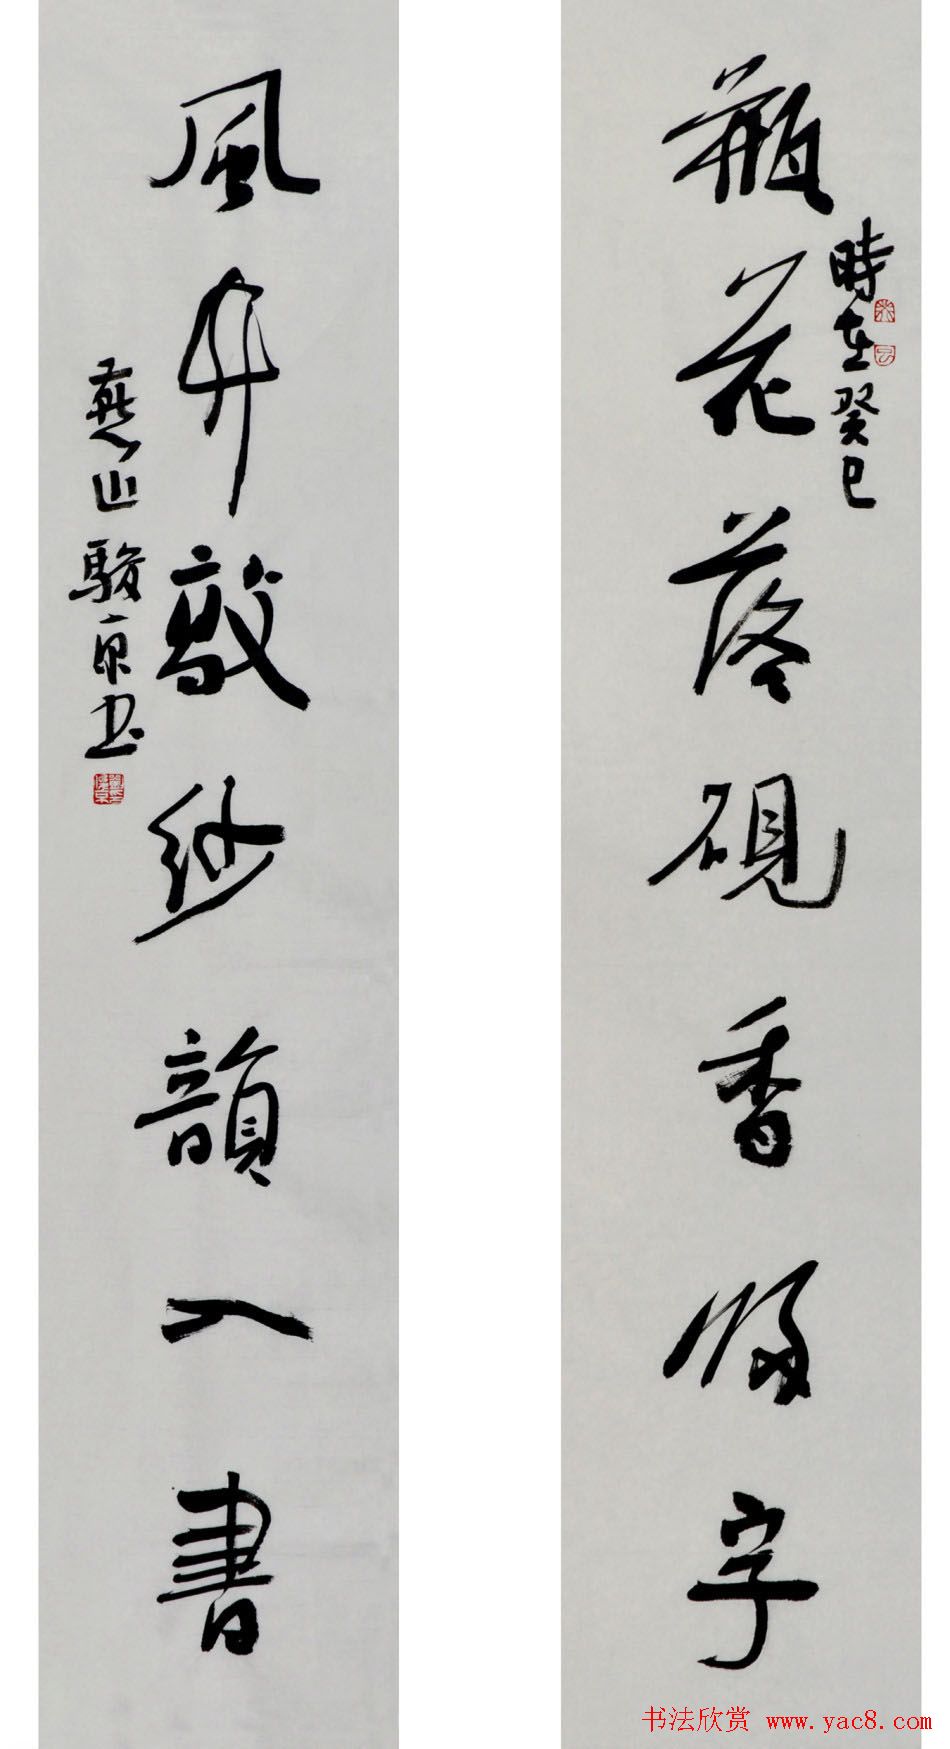 瓶花落硯香歸字
時在癸巳
風竹敲紗韻入書
燕山駿京书
书法欣赏 www.yac8.com